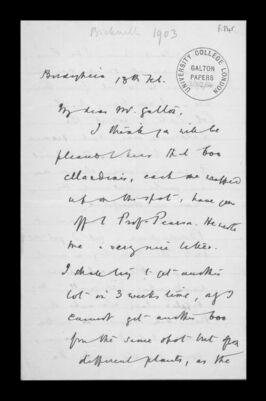 Bicknell 1903
UNIVERSITY COLLEGE LONDON
GALTON PAPERS
Bordighera 18th Feb.
My dear Mr. Galton,
I think you will be
pleased to hear that 600
each one wrapped
up on the spot, have gone
off to Prof. Pearson. He wrote
me a very nice letter.
I shall try to get another
lot in 3 weeks time, as I
cannot get another 600
from the same spot but from
different plants, as the